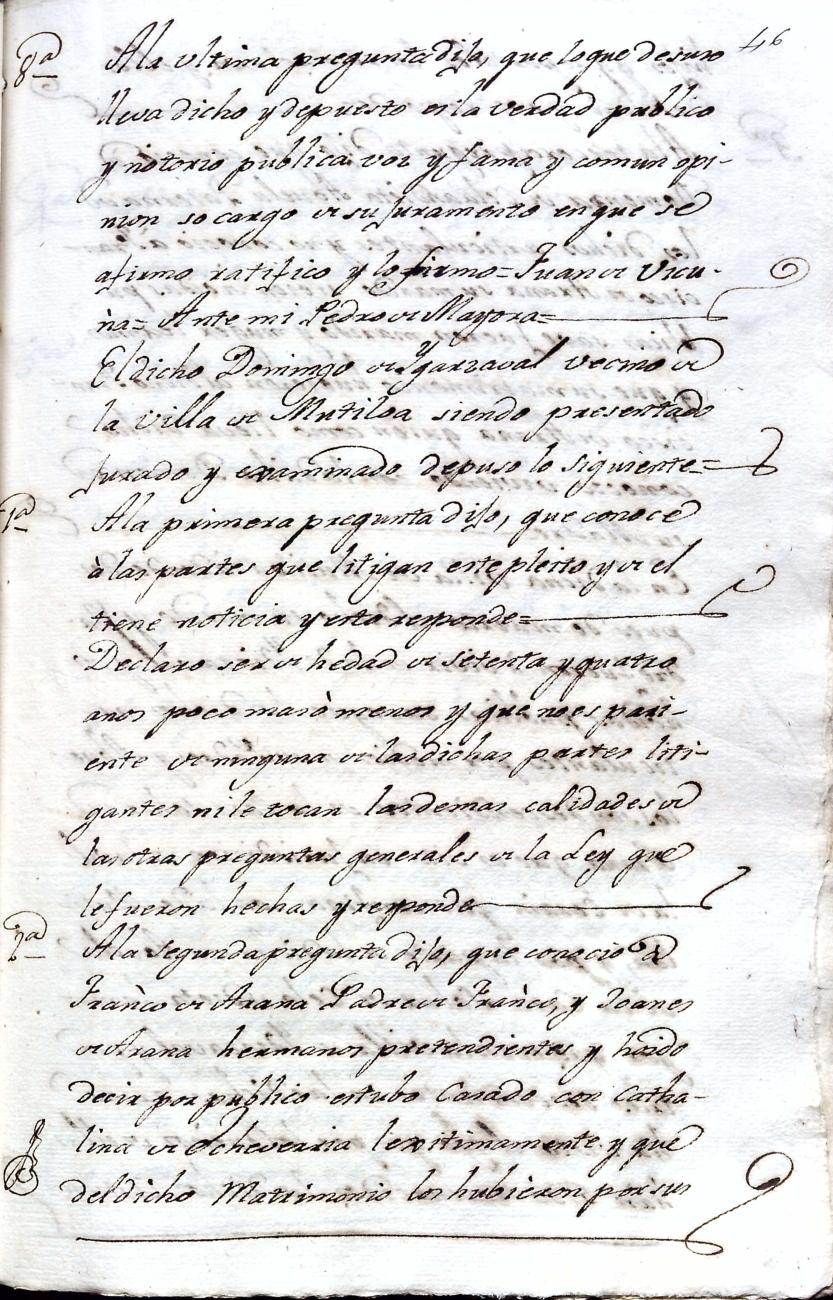 46
8ª A la ultima pregunta dijo, que lo que de suso
lleva dicho y depuesto es la verdad publico
y notorio publica voz y fama y comun opi-
nion so cargo de su juramento en que se
afirmo ratifico y lo firmo = Juan de Vicu-
ña = Ante mi Pedro de Mayora =
El dicho Domingo de Ygarzaval vecino de
la villa de Mutiloa siendo presentado
jurado y examinado depuso lo siguiente =
1ª A la primera pregunta dijo, que conoce
à las partes que litigan este pleito y de el
tiene noticia y esto responde =
Declaro ser de hedad de setenta y quatro
anos poco mas ò menos y que no es pari-
ente de ninguna de las dichas partes liti-
gantes ni le tocan las demas calidades de
las otras preguntas generales de la Ley que
le fueron hechas y responde
2ª A la segunda pregunta dijo, que conocio à
Franco de Arana Padre de Franco, y Joanes
de Arana hermanos pretendientes y hoido
decir por publico estubo Casado con Catha-
lina de Echeverria lexitimamente y que
del dicho Matrimonio los hubieron por sus